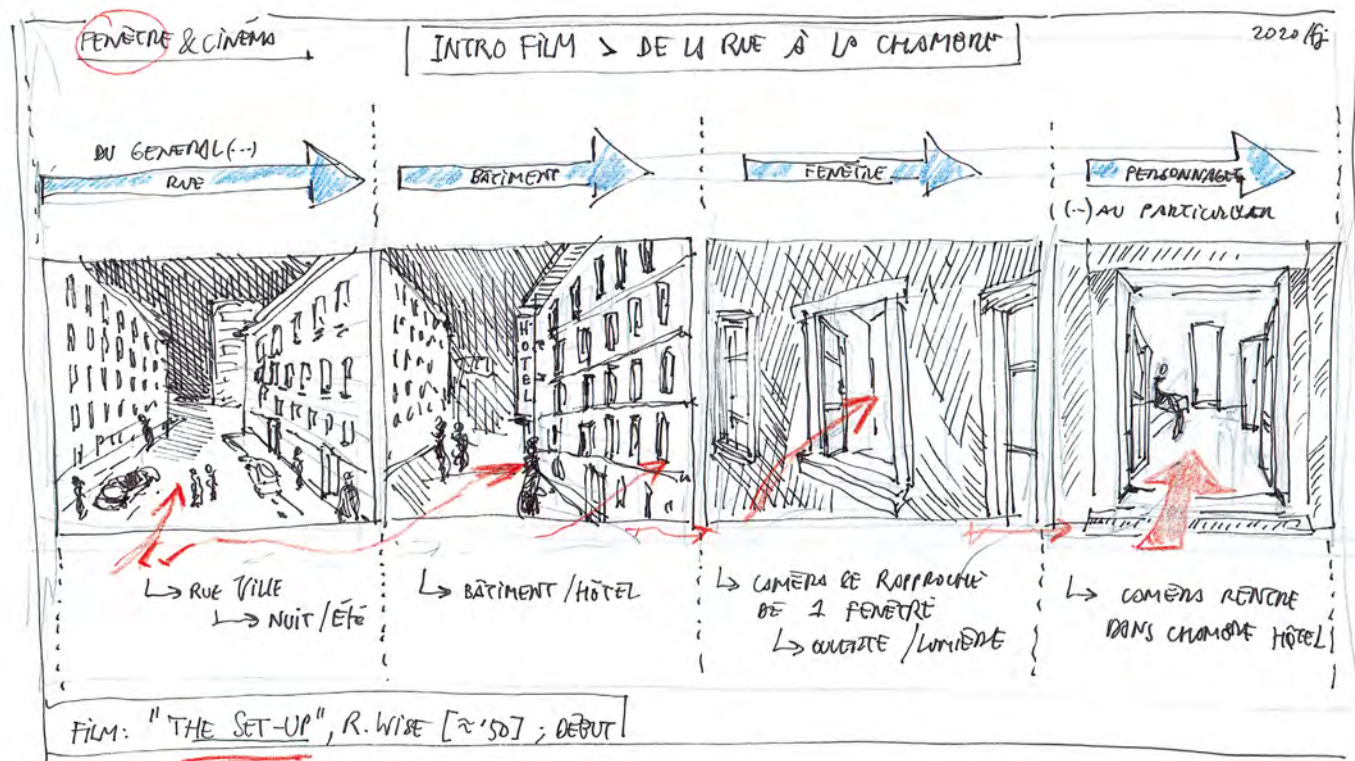 FENÊTRE & CINÉMA
INTRO FILM > DE LA RUE À LA CHAMBRE
2020
DU GENERAL (...)
RUE
BÂTIMENT
FENÊTRE
PERSONNAGES
(...) AU PARTICULIER
HOTEL
↳ RUE VILLE
↳ NUIT / ÉTÉ
↳ BÂTIMENT / HÔTEL
↳ CAMÉRA SE RAPPROCHE
DE 1 FENÊTRE
↳ OUVERTE / LUMIÈRE
↳ CAMÉRA RENTRE
DANS CHAMBRE HÔTEL
FILM: "THE SET-UP", R. WISE [≈ '50] ; DÉBUT